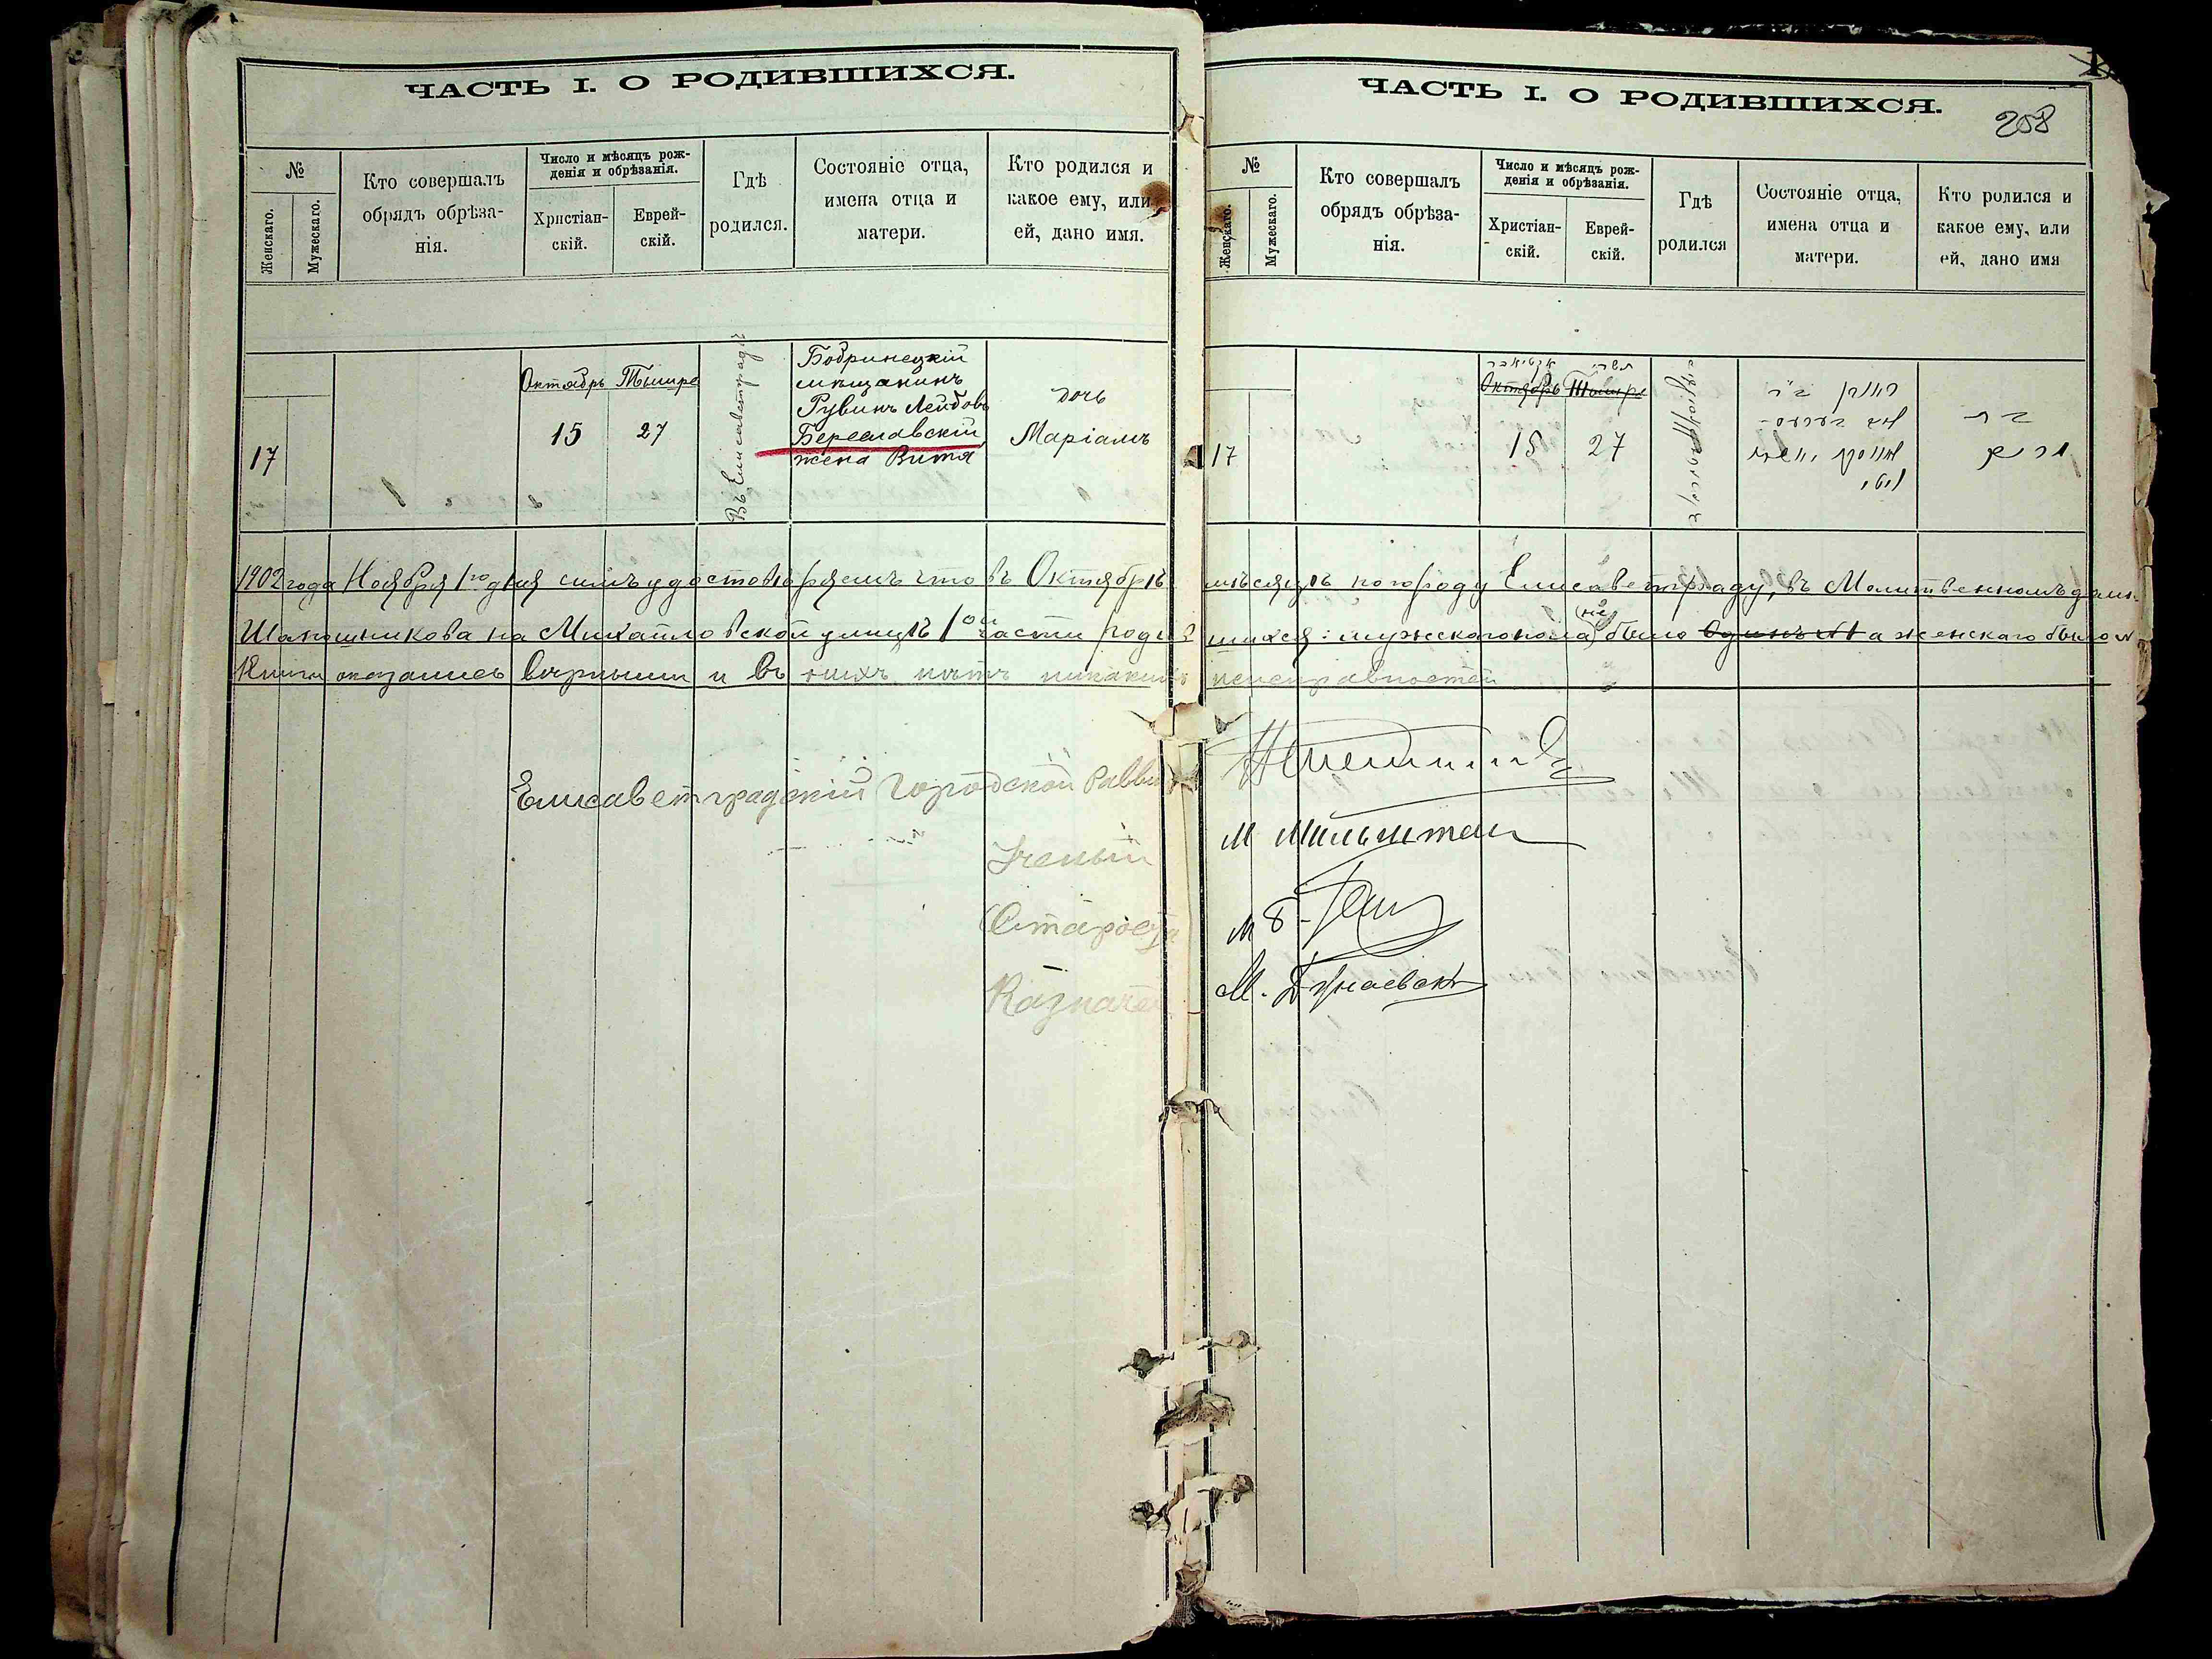 ЧАСТЬ I. О РОДИВШИХСЯ.
№
Женскаго.
Мужескаго.
Кто совершалъ
обрядъ обрѣза-
нія.
Число и мѣсяцъ рож-
денія и обрѣзанія.
Христіан-
скій.
Еврей-
скій.
Гдѣ
родился.
Состояніе отца,
имена отца и
матери.
Кто родился и
какое ему, или
ей, дано имя.
17
Октябрь Тышре
15 27
Въ Елисаветградѣ
Бобринецкій
мѣщанинъ
Рувинъ Лейбовъ
Береславскій,
жена Витя
дочь
Маріамъ
ЧАСТЬ I. О РОДИВШИХСЯ.
258
№
Женскаго.
Мужескаго.
Кто совершалъ
обрядъ обрѣза-
нія.
Число и мѣсяцъ рож-
денія и обрѣзанія.
Христіан-
скій.
Еврей-
скій.
Гдѣ
родился
Состояніе отца,
имена отца и
матери.
Кто родился и
какое ему, или
ей, дано имя
17
תשרי
Октябрь Тышре
15 27
ראובן ב״ר
בת
מרים
1902 года Ноября 1го дня симъ удостовѣряемъ что въ Октябрѣ мѣсяцѣ по городу Елисаветграду, въ Молитвенномъ домѣ
Шапошникова на Михайловской улицѣ 1ой части родившихся: мужескаго пола было Одинъ №1 а женскаго было
Книги оказались вѣрными и въ нихъ нѣтъ никакихъ неисправностей
Елисаветградскій Городской Раввинъ
Ученый М Мильштейн
Староста
Казначей М. Дунаевскі